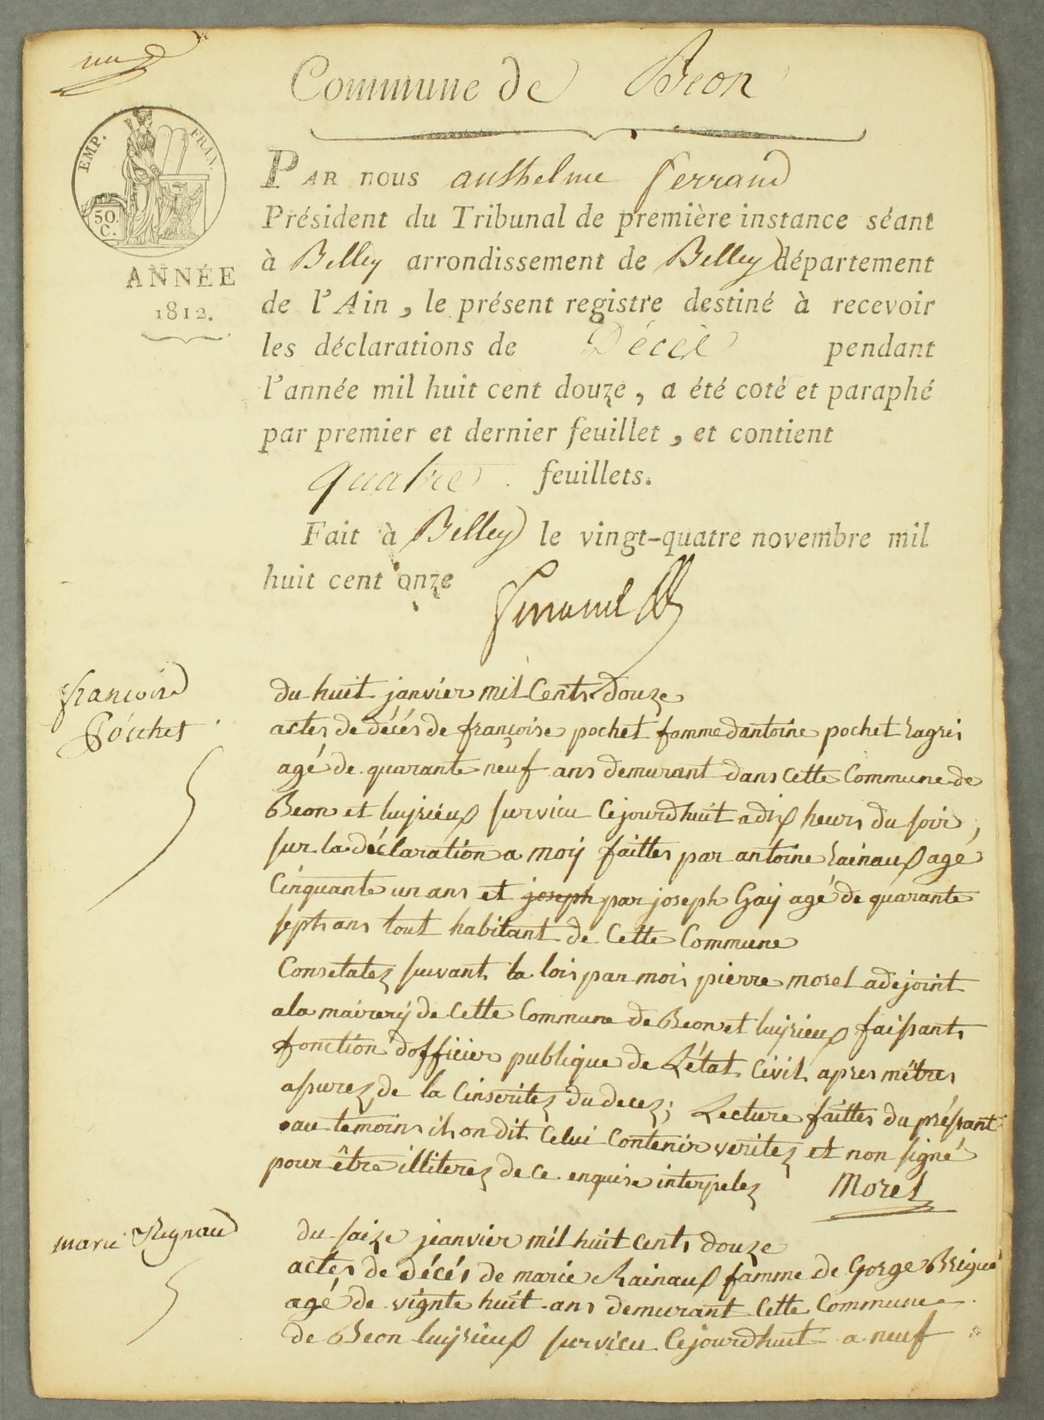 Commune de Beon
EMP. FRAN.
50. C.
ANNÉE
1812.
PAR nous anthelme ferrand
Président du Tribunal de première instance séant
à Belley arrondissement de Belley département
de l'Ain, le présent registre destiné à recevoir
les déclarations de Décès pendant
l'année mil huit cent douze, a été coté et paraphé
par premier et dernier feuillet, et contient
quatre feuillets.
Fait à Belley le vingt-quatre novembre mil
huit cent onze
françoise
Pochet
du huit janvier mil Cents douze
actes de décés de françoise pochet famme dantoine pochet
agé de quarante neuf ans demurant dans Cette Commune de
Beon et luyrieux survicu Cejourdhuit a dix heurs du soir,
sur la déclaration a moy faittes par antoine Rainaux agé
Cinquante un ans et joseph par joseph Gay agé de quarante
septs ans tout habitant de Cette Commune
Constatez suivant la lois par mois pierre morel adejoint
a la mairery de Cette Commune de Beon et luyrieux faissants
fonction dofficier publique de Létat Civil apres métres
assurez de la Cinserites du decez; Lecture faittes du préssant
au temoins il on dit Celui Contenir veritez et non signé
pour être illiterez de ce enquise interpelez Morel
marie Reynaud
du saize jeanvier mil huit Cents douze
actes de décés de marie Rainaux famme de Gorge
agé de vignte huit ans demurant Cette Commune
de Beon luyrieux survicu Cejourdhuit a neuf